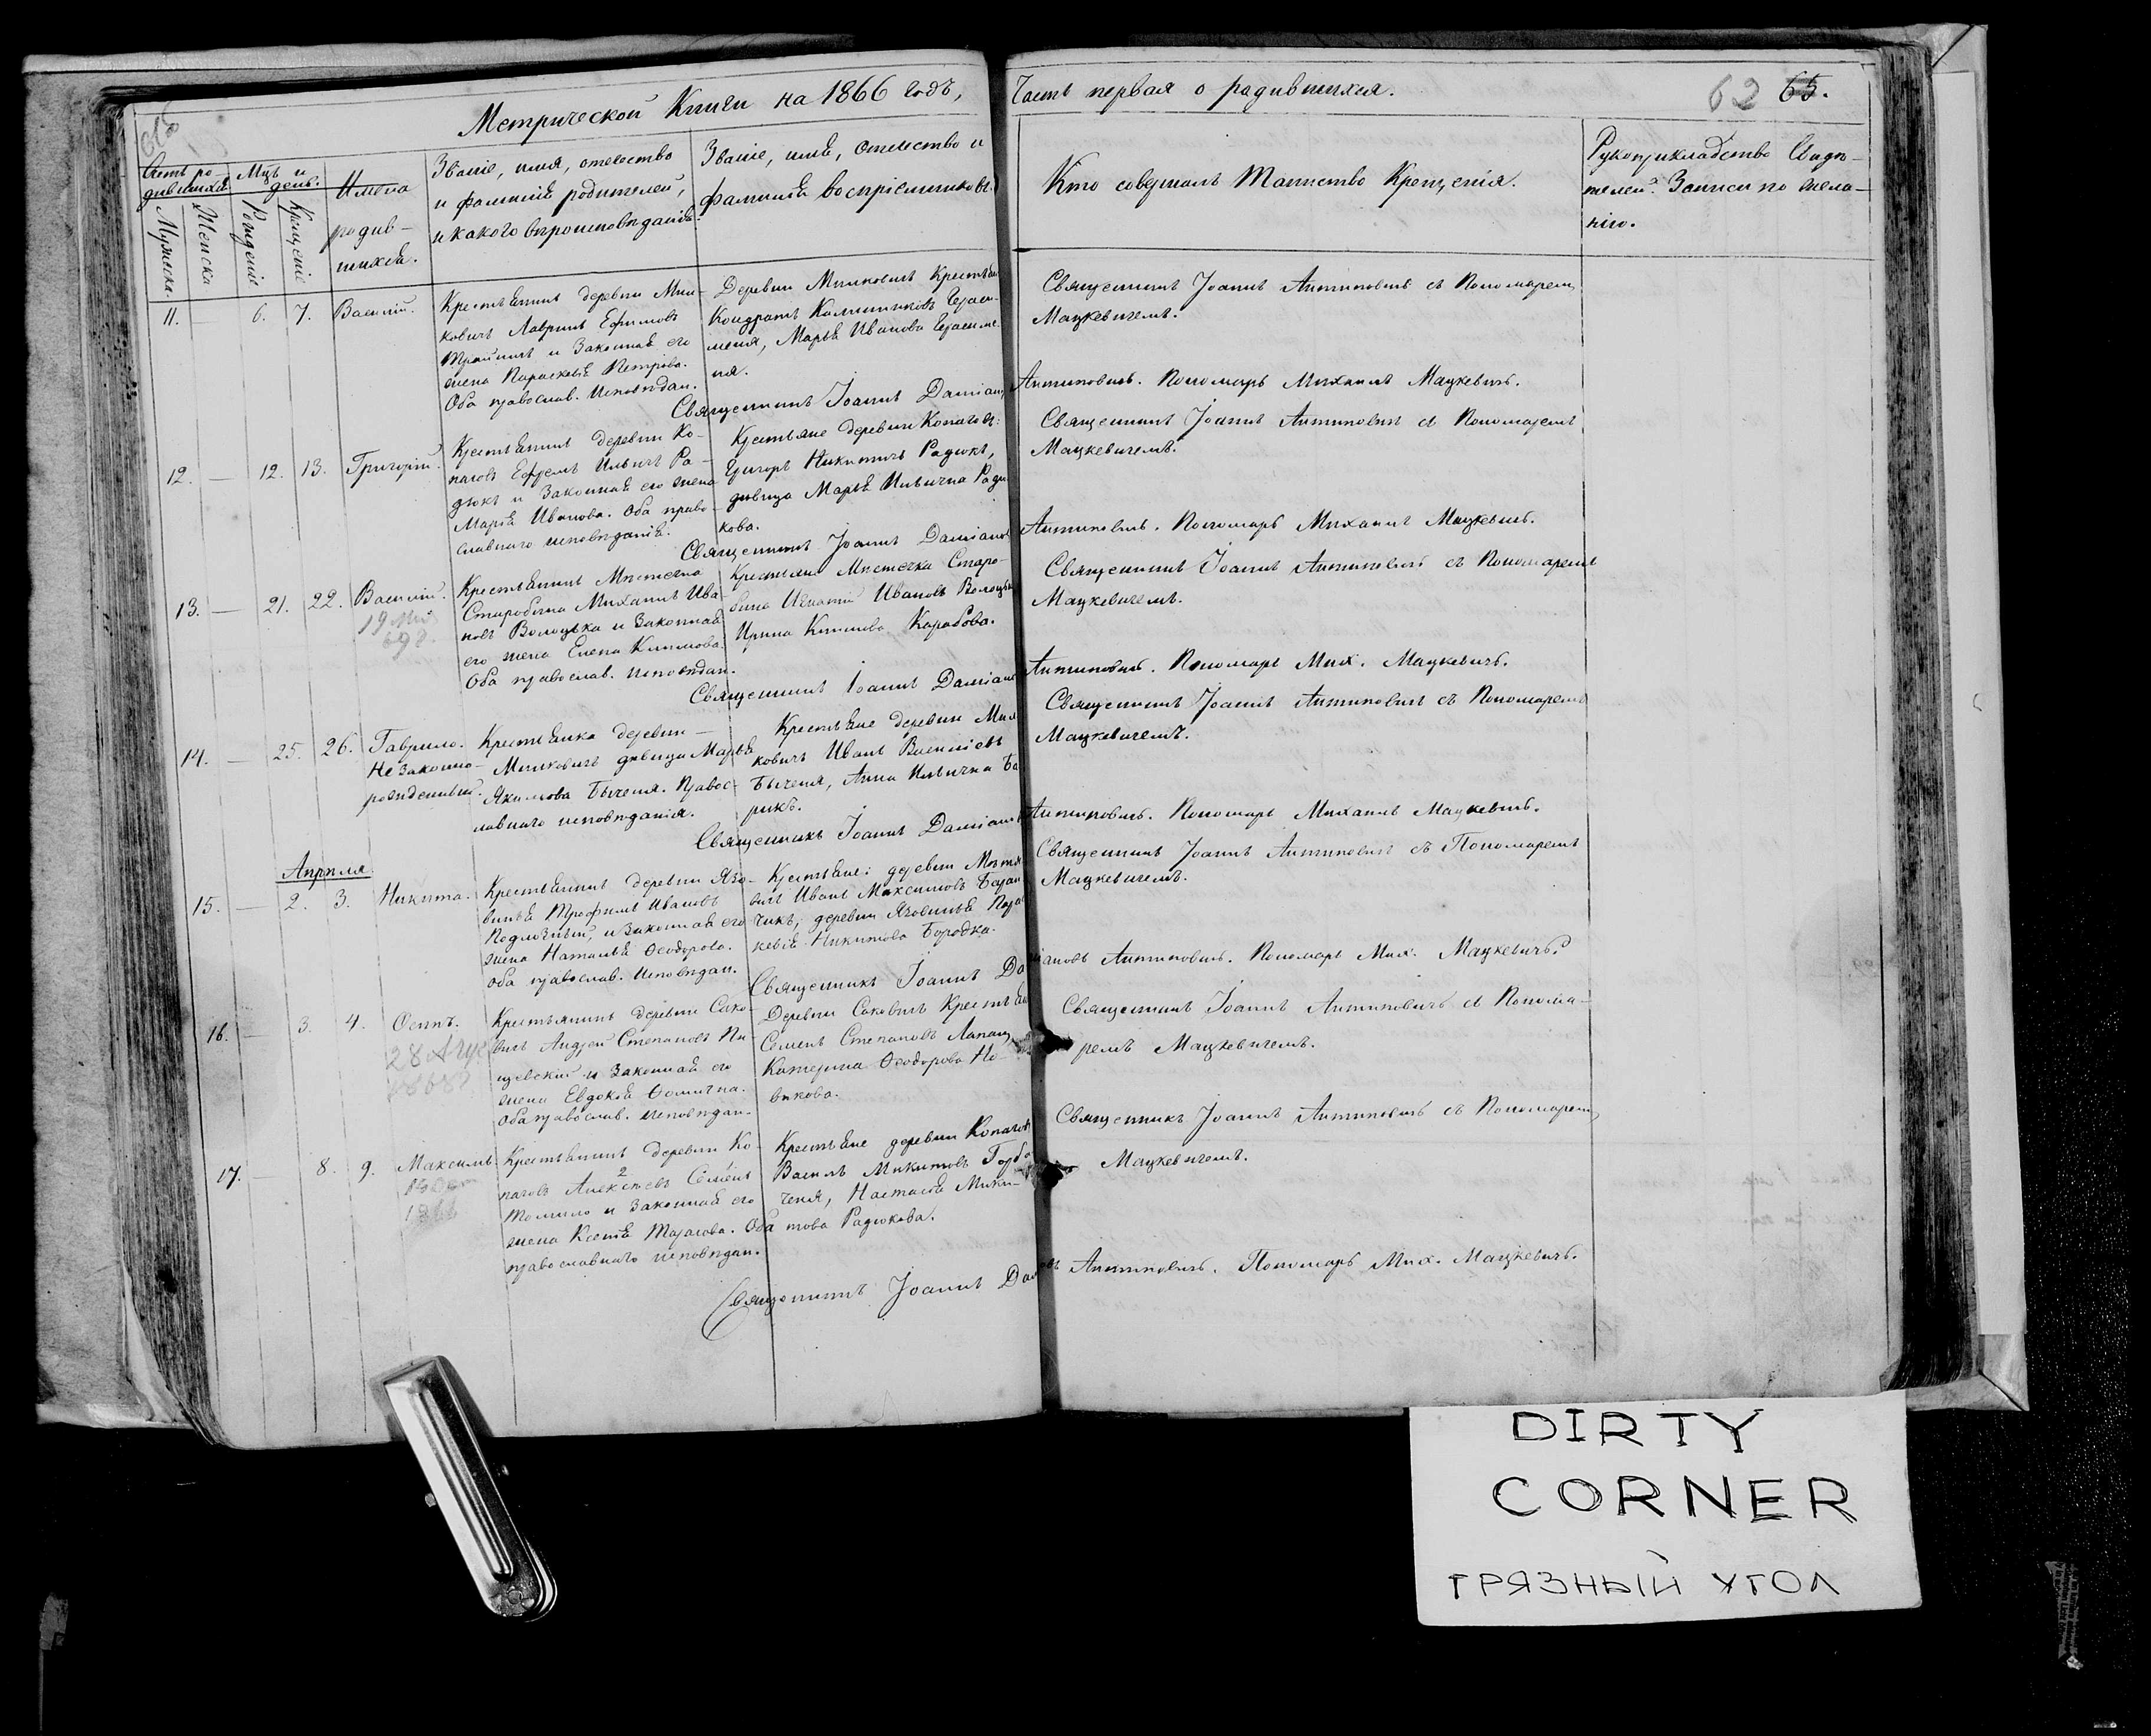 Метрической Книги на 1866 годъ, Часть первая о родившихся.
62 65.
Счетъ ро-
дившихся
Мужеска.
Женска
Мцъ и
день.
Рожденіе
Крещеніе
Имена
родив-
шихся.
Званіе, имя, отечество
и фамилія родителей,
и какого вѣроисповѣданія
Званіе, имя, отечество и
фамилія воспріемниковъ
Кто совершалъ Таинство Крещенія.
Рукоприкладство Свидѣ-
телей Записи по жела-
нію.
11. — 6. 7. Василій.
Крестьянинъ деревни Мил-
ковичъ Лавринъ Ефимовъ
и Законная его
жена Параскевія Петрова.
Оба православ. Исповѣдан.
Деревни Милковичъ Крестьяне
Кондратъ
Марья Иванова
ня.
Священникъ Іоаннъ Антиповичъ съ Пономаремъ
Мацкевичемъ.
Священникъ Іоаннъ Даміановъ Антиповичъ. Пономарь Михаилъ Мацкевичъ.
12. — 12. 13. Григорій.
Крестьянинъ деревни Ко-
пачовъ Ефремъ Ильичъ Ра-
дюкъ и Законная его жена
Марія Иванова. Оба право-
славнаго исповѣданія.
Крестьяне деревни Копачовъ:
Григорь Никитичъ Радюкъ,
дѣвица Марья Ильична Радю
кова.
Священникъ Іоаннъ Антиповичъ съ Пономаремъ
Мацкевичемъ.
Священникъ Іоаннъ Даміановъ Антиповичъ. Пономарь Михаилъ Мацкевичъ.
13. — 21. 22. Василій.
Крестьянинъ Мѣстечка
Старобина Михаилъ Ива-
новъ Волоцька и Законная
его жена Елена Климова.
Оба православ. исповѣдан.
Крестьяне Мѣстечка Старо-
бина Игнатій Ивановъ Волоцька
Ирина Климова Карабова.
Священникъ Іоаннъ Антиповичъ съ Пономаремъ
Мацкевичемъ.
Священникъ Іоаннъ Даміановъ Антиповичъ. Пономарь Мих. Мацкевичъ.
14. — 25. 26. Гаврило.
Незаконно-
рожденный.
Крестьянка деревни —
Милковичъ дѣвица Марья
Якимова Быченя. Правос-
лавнаго исповѣданія.
Крестьяне деревни Мил
ковичъ Иванъ Васильевъ
Быченя, Анна Ильична Ба
рикъ.
Священникъ Іоаннъ Антиповичъ съ Пономаремъ
Мацкевичемъ.
Священникъ Іоаннъ Даміановъ Антиповичъ. Пономарь Михаилъ Мацкевичъ.
Апрѣля
15. — 2. 3. Никита.
Крестьянинъ деревни Язо-
винья Трофимъ Ивановъ
Подлозный, и Законная его
жена Наталья Ѳеодорова.
Оба православ. Исповѣдан.
Крестьяне: деревни
Иванъ Максимовъ Баран
чикъ, деревни Язовинья Парас
кевія Никитова Бородка.
Священникъ Іоаннъ Антиповичъ съ Пономаремъ
Мацкевичемъ.
Священникъ Іоаннъ Даміановъ Антиповичъ. Пономарь Мих. Мацкевичъ.
16. — 3. 4. Осипъ.
Крестьянинъ деревни Сако-
вичъ Андрей Степановъ Пи
щевскій и Законная его
жена Евдокія Ѳомична.
Оба православ. исповѣдан.
Деревни Саковичъ Крестьяне
Семенъ Степановъ
Катерина Ѳеодорова Но-
викова.
Священникъ Іоаннъ Антиповичъ съ Понома-
ремъ Мацкевичемъ.
17. — 8. 9. Максимъ.
Крестьянинъ деревни Ко-
пачовъ Алексѣевъ Семенъ
Томило и Законная его
жена Ксенія Тарасова. Оба
православнаго исповѣдан.
Крестьяне деревни Копачовъ
Василь Микитовъ Горба
ченя, Настасія Мики-
това Радюкова.
Священникъ Іоаннъ Антиповичъ съ Пономаремъ
Мацкевичемъ.
Священникъ Іоаннъ Даміановъ Антиповичъ. Пономарь Мих. Мацкевичъ.
DIRTY
CORNER
ГРЯЗНЫЙ УГОЛ